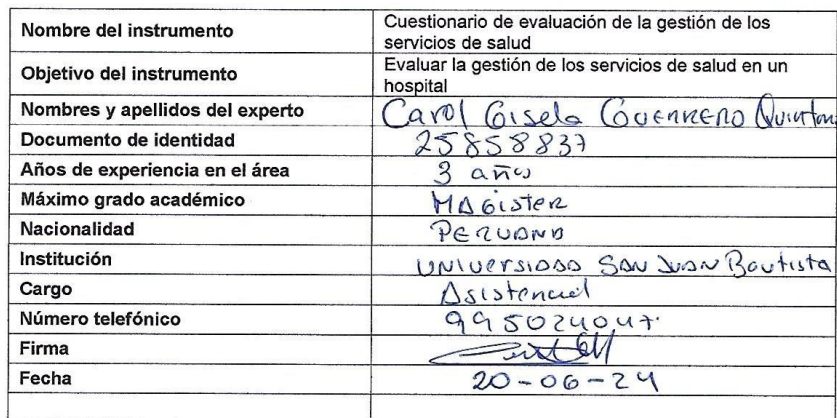 Nombre del instrumento
Cuestionario de evaluación de la gestión de los
servicios de salud
Objetivo del instrumento
Evaluar la gestión de los servicios de salud en un
hospital
Nombres y apellidos del experto
Carol Gisela GUERRERO Quintana
Documento de identidad
25858837
Años de experiencia en el área
3 años
Máximo grado académico
MAGister
Nacionalidad
PERUANA
Institución
UNIVERSIDAD SAN JUAN Bautista
Cargo
Asistencial
Número telefónico
995024047.
Firma
Fecha
20-06-24